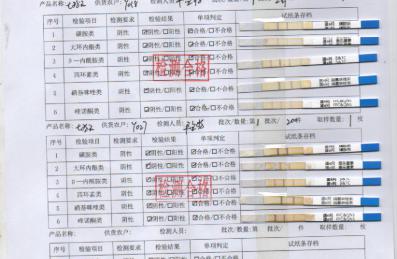 产品名称: 供货农户: Y028 检测人员: 批次/数量: 第
序号 检验项目 检测要求 检验结果 单项判定 试纸条存档
1 磺胺类 阴性 ☑阴性/☐阳性 ☑合格/☐不合格
2 大环内酯类 阴性 ☑阴性/☐阳性 ☑合格/☐不合格
3 β一内酰胺类 阴性 ☑阴性/☐阳性 ☑合格/☐不合格
4 四环素类 阴性 ☑阴性/☐阳性 ☑合格/☐不合格
检测合格
5 硝基咪唑类 阴性 ☑阴性/☐阳性 ☑合格/☐不合格
6 喹诺酮类 阴性 ☑阴性/☐阳性 ☑合格/☐不合格
产品名称: 供货农户: Y027 检测人员: 批次/数量: 第1 批次/ 20件 取样数量: 1 枚
序号 检验项目 检测要求 检验结果 单项判定 试纸条存档
1 磺胺类 阴性 ☑阴性/☐阳性 ☑合格/☐不合格
2 大环内酯类 阴性 ☑阴性/☐阳性 ☑合格/☐不合格
3 β一内酰胺类 阴性 ☑阴性/☐阳性 ☑合格/☐不合格
4 四环素类 阴性 ☑阴性/☐阳性 ☑合格/☐不合格
检测合格
5 硝基咪唑类 阴性 ☑阴性/☐阳性 ☑合格/☐不合格
6 喹诺酮类 阴性 ☑阴性/☐阳性 ☑合格/☐不合格
产品名称: 供货农户: 检测人员: 批次/数量: 第 批次/ 件 取样数量: 枚
序号 检验项目 检测要求 检验结果 单项判定 试纸条存档